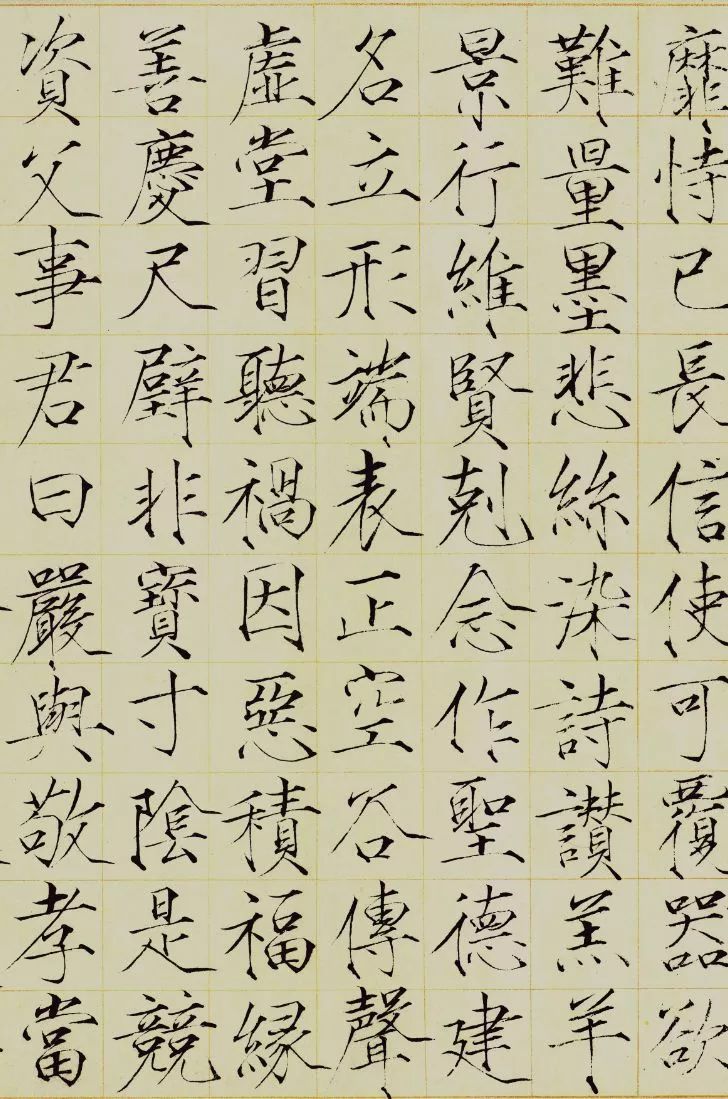 靡恃己長信使可覆器欲
難量墨悲絲染詩讃羔羊
景行維賢剋念作聖德建
名立形端表正空谷傳聲
虛堂習聽禍因惡積福緣
善慶尺璧非寶寸陰是競
資父事君曰嚴與敬孝當